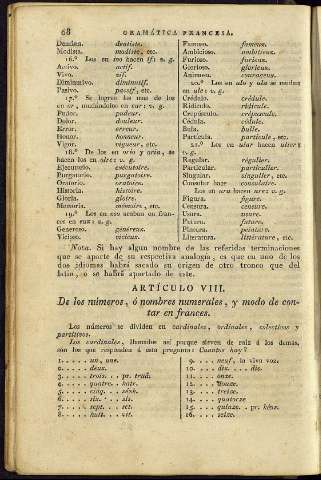 68 GRAMÁTICA FRANCESA.
Dentista. dentiste.
Modista. modiste, etc.
16.º Los en ivo hacen if: v. g.
Activo. actif.
Vivo. vif.
Diminutivo. diminutif.
Pasivo. passif, etc.
17.º Se logran los mas de los
en or, mudándolos en eur: v. g.
Pudor. pudeur.
Dolor. douleur.
Error. erreur.
Honor. honneur.
Vigor. vigueur, etc.
18.º De los en orio y oria, se
hacen los en oire: v. g.
Ejecutorio. exécutoire.
Purgatorio. purgatoire.
Oratorio. oratoire.
Historia. histoire.
Gloria. gloire.
Memoria. mémoire, etc.
19.º Los en oso acaban en fran-
ces en eux: v. g.
Generoso. généreux.
Vicioso. vicieux.
Famoso. fameux.
Ambicioso. ambitieux.
Furioso. furieux.
Glorioso. glorieux.
Animoso. courageux.
20.º Los en ulo y ula se mudan
en ule: v. g.
Crédulo. crédule.
Ridículo. ridicule.
Crepúsculo. crépuscule.
Cédula. cédule.
Bula. bulle.
Partícula. particule, etc.
21.º Los en ular hacen ulier:
v. g.
Regular. régulier.
Particular. particulier.
Singular. singulier, etc.
Consular hace consulaire.
Los en ura hacen ure: v. g.
Figura. figure.
Censura. censure.
Usura. usure.
Futura. future.
Pintura. peinture.
Literatura. littérature, etc.
Nota. Si hay algun nombre de las referidas terminaciones
que se aparte de su respectiva analogía, es que en uno de los
dos idiomas habrá sacado su orígen de otro tronco que del
latin, ó se habrá apartado de este.
ARTÍCULO VIII.
De los números, ó nombres numerales, y modo de con-
tar en frances.
Los números se dividen en cardinales, ordinales, colectivos y
partitivos.
Los cardinales, llamados así porque sirven de raiz á los demas,
son los que responden á esta pregunta: Cuantos hay?
1..... un, une.
2..... deux.
3..... trois... pr. truá.
4..... quatre.. katr.
5..... cinq... sénk.
6..... six... sis.
7..... sept.. set.
8..... huit.. uit.
9.... neuf, la viva voz.
10.... dix... dis.
11.... onze.
12.... douze.
13.... treize.
14.... quatorze
15.... quinze.. pr. kénz.
16.... seize.